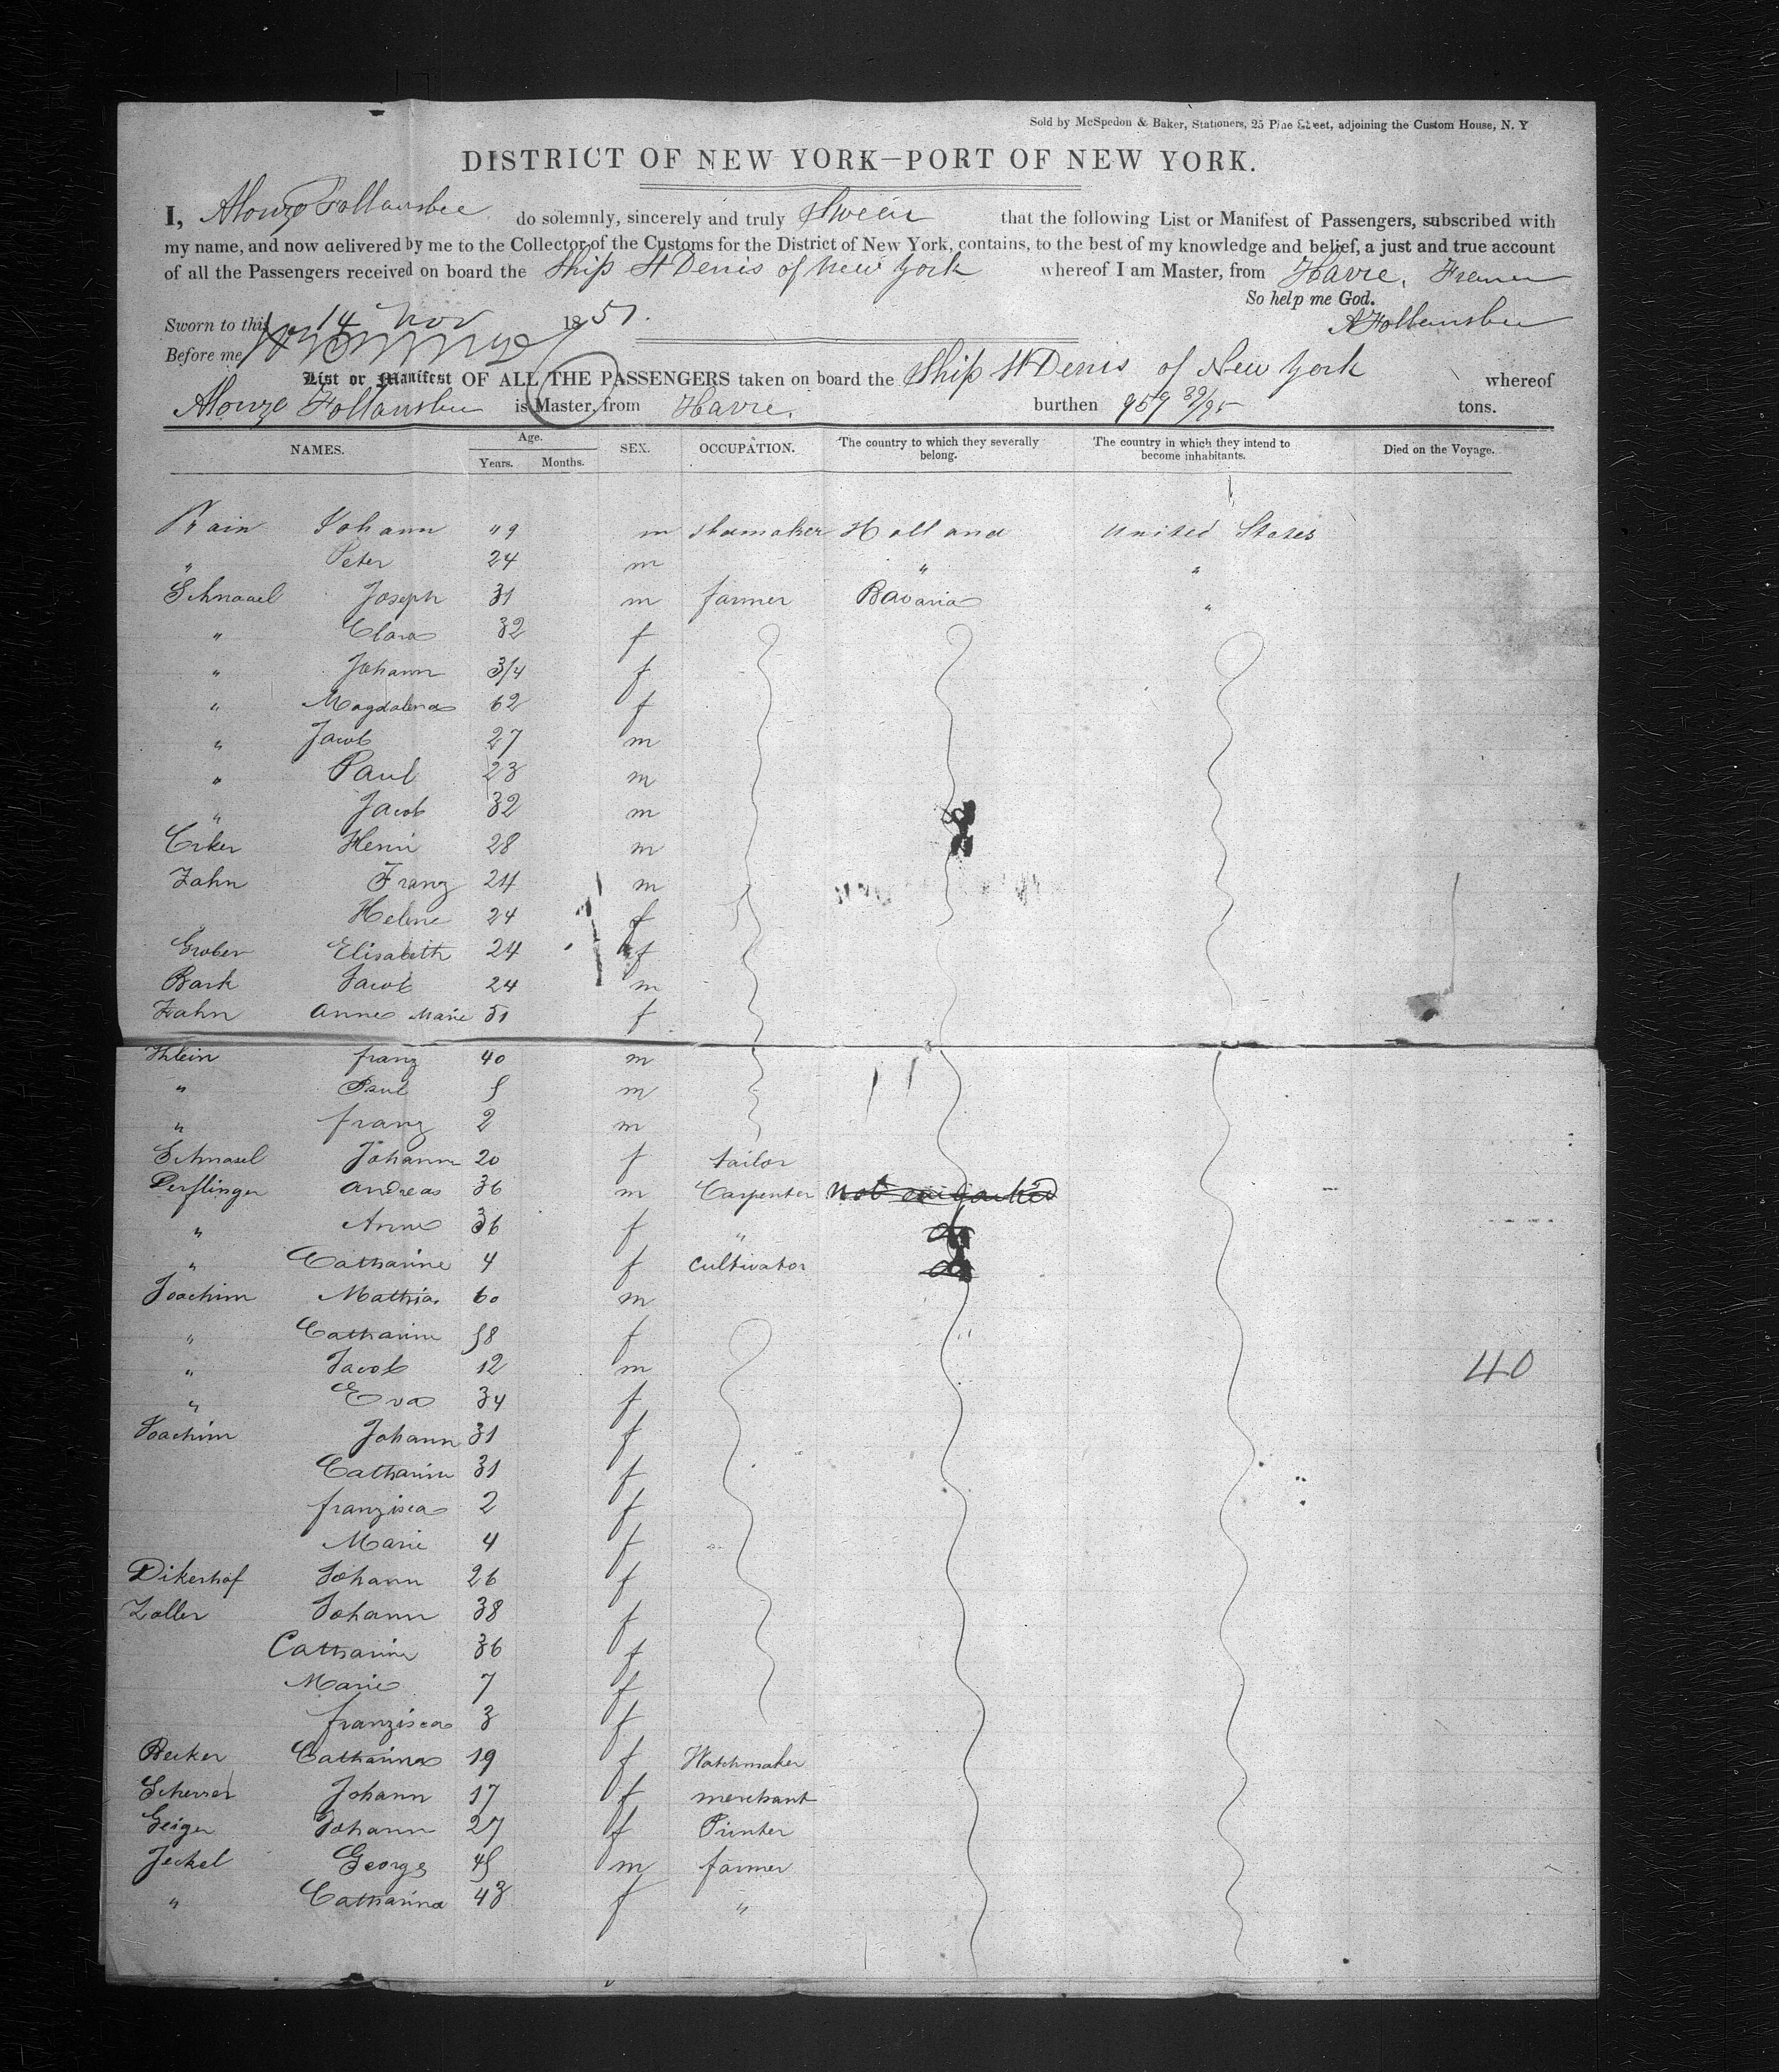 Sold by McSpedon & Baker, Stationers, 25 Pine Street, adjoining the Custom House, N. Y
DISTRICT OF NEW YORK—PORT OF NEW YORK.
I, Alonzo Follansbee do solemnly, sincerely and truly Swear that the following List or Manifest of Passengers, subscribed with
my name, and now delivered by me to the Collector of the Customs for the District of New York, contains, to the best of my knowledge and belief, a just and true account
of all the Passengers received on board the Ship St Denis of New York whereof I am Master, from Havre, France
So help me God.
Sworn to this 14 Nov 1851. A Follansbee
Before me
List or Manifest OF ALL THE PASSENGERS taken on board the Ship St Denis of New York whereof
Alonzo Follansbee is Master, from Havre. burthen 959 89/95 tons.
NAMES. Age. Years. Months. SEX. OCCUPATION. The country to which they severally belong. The country in which they intend to become inhabitants. Died on the Voyage.
Johann m Shomaker Holland United States
" Peter 24 m " "
Joseph 31 m farmer Bavaria "
" Clara 32 f
" Johann 3/4 f
" Magdalena 62 f
" Jacob 27 m
" Paul 23 m
" Jacob 32 m
Erker Henri 28 m
Zahn Franz 24 m
Helene 24 f
Grober Elisabeth 24 f
Bark Jacob 24 m
Zahn Anne Marie 51 f
Klein franz 40 m
" Paul 5 m
" franz 2 m
Schnasel Johann 20 f tailor
Derflinger Andreas 36 m Carpenter not embarked
" Anne 36 f " do
" Catharine 4 f cultivator do
Joachim Mathias 60 m
" Catharine 58 f
" Jacob 12 m
" Eva 34 f
40
Joachim Johann 31 f
Catharine 31 f
franzisca 2 f
Marie 4 f
Dikerhof Johann 26 f
Zoller Johann 38 f
Catharine 36 f
Marie 7 f
franzisca 3 f
Becker Catharina 19 f Watchmaker
Scherrer Johann 17 f merchant
Geiger Johann 27 f Printer
Jeckel George 45 m farmer
" Catharina 43 f "